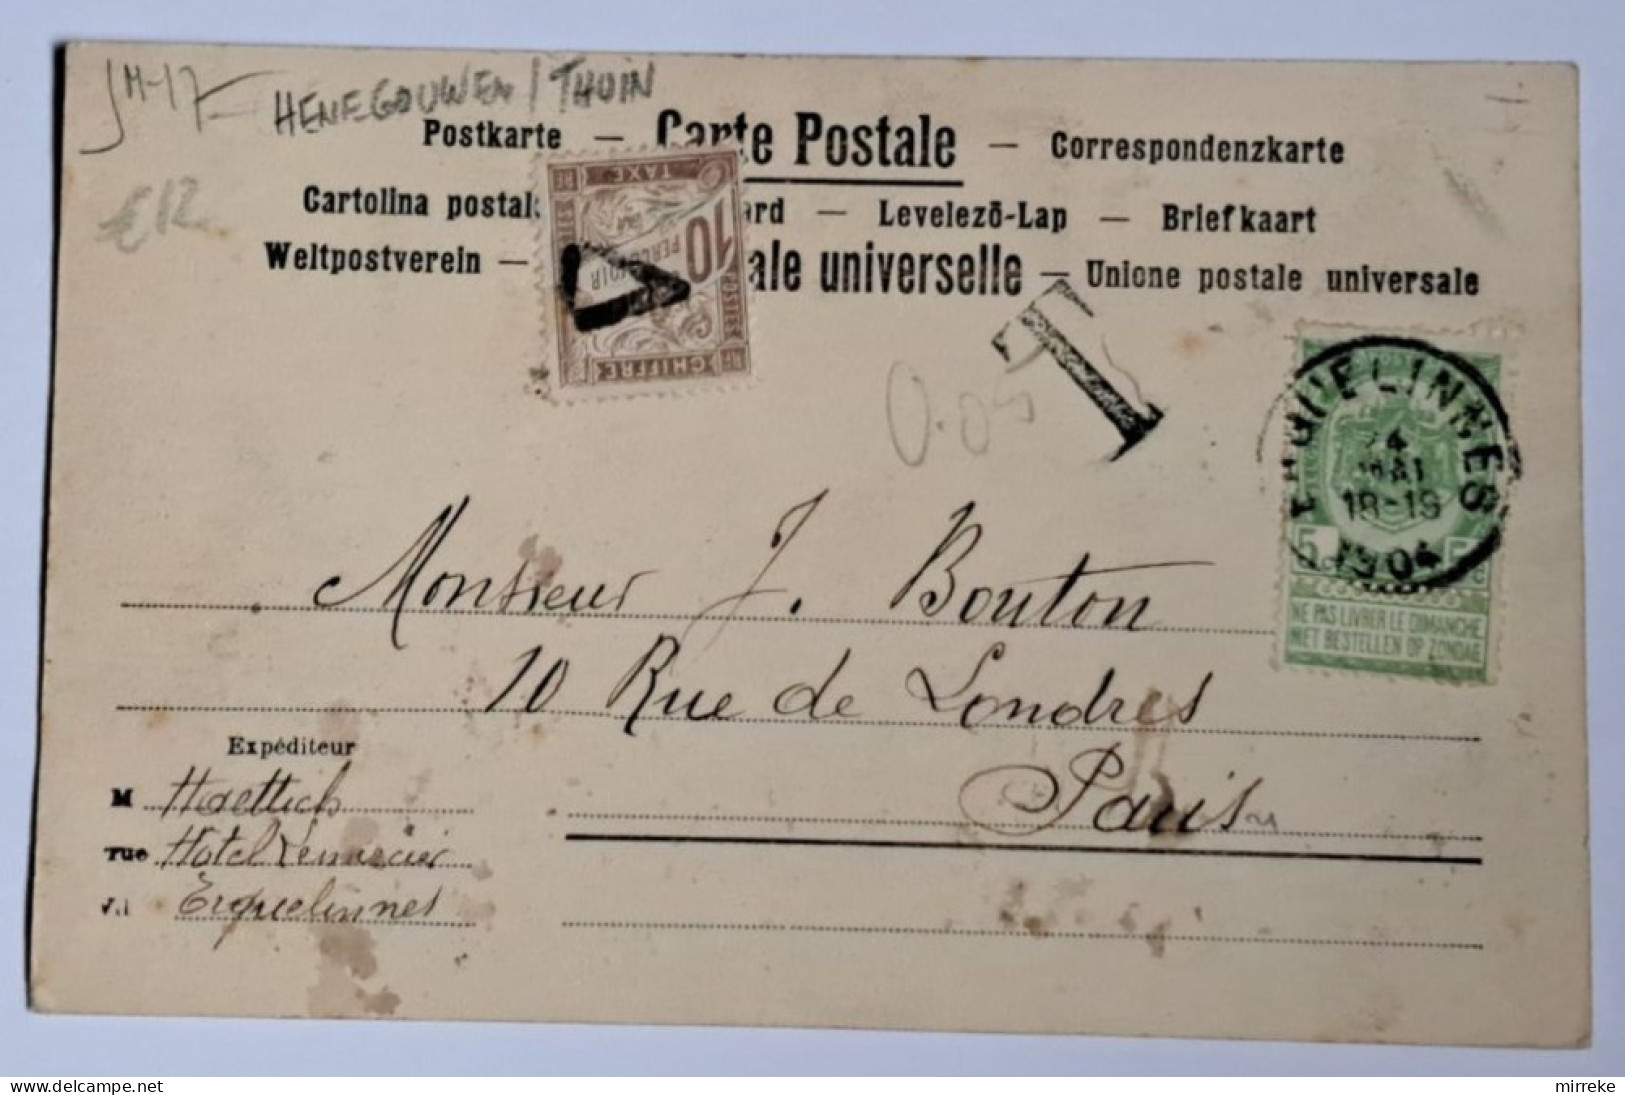 JM-17
HENEGOUWEN / THUIN
€12
Postkarte — Carte Postale — Correspondenzkarte
Cartolina postal ard — Levelező-Lap — Briefkaart
Weltpostverein — ale universelle — Unione postale universale
TAXE
10
PERCEVOIR
POSTES
CHIFFRE
RF
T
0.05
ERQUELINNES
4
MAI
18-19
1904
5 5
NE PAS LIVRER LE DIMANCHE
NIET BESTELLEN OP ZONDAG
Monsieur J. Bouton
10 Rue de Londres
Paris
Expéditeur
M Haettich
rue Hotel Lemercier
Erquelinnes
mirreke